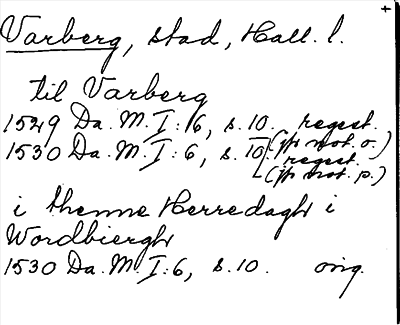 Varberg, stad, Hall. l.
til Varberg
1529 Da. M. I: 6, s. 10. regest.
(jfr not. o.)
1530 Da. M. I: 6, s. 10. regest.
(jfr not. p.)
i thenne Herredagh i
Wordbiergh
1530 Da. M. I: 6, s. 10. orig.